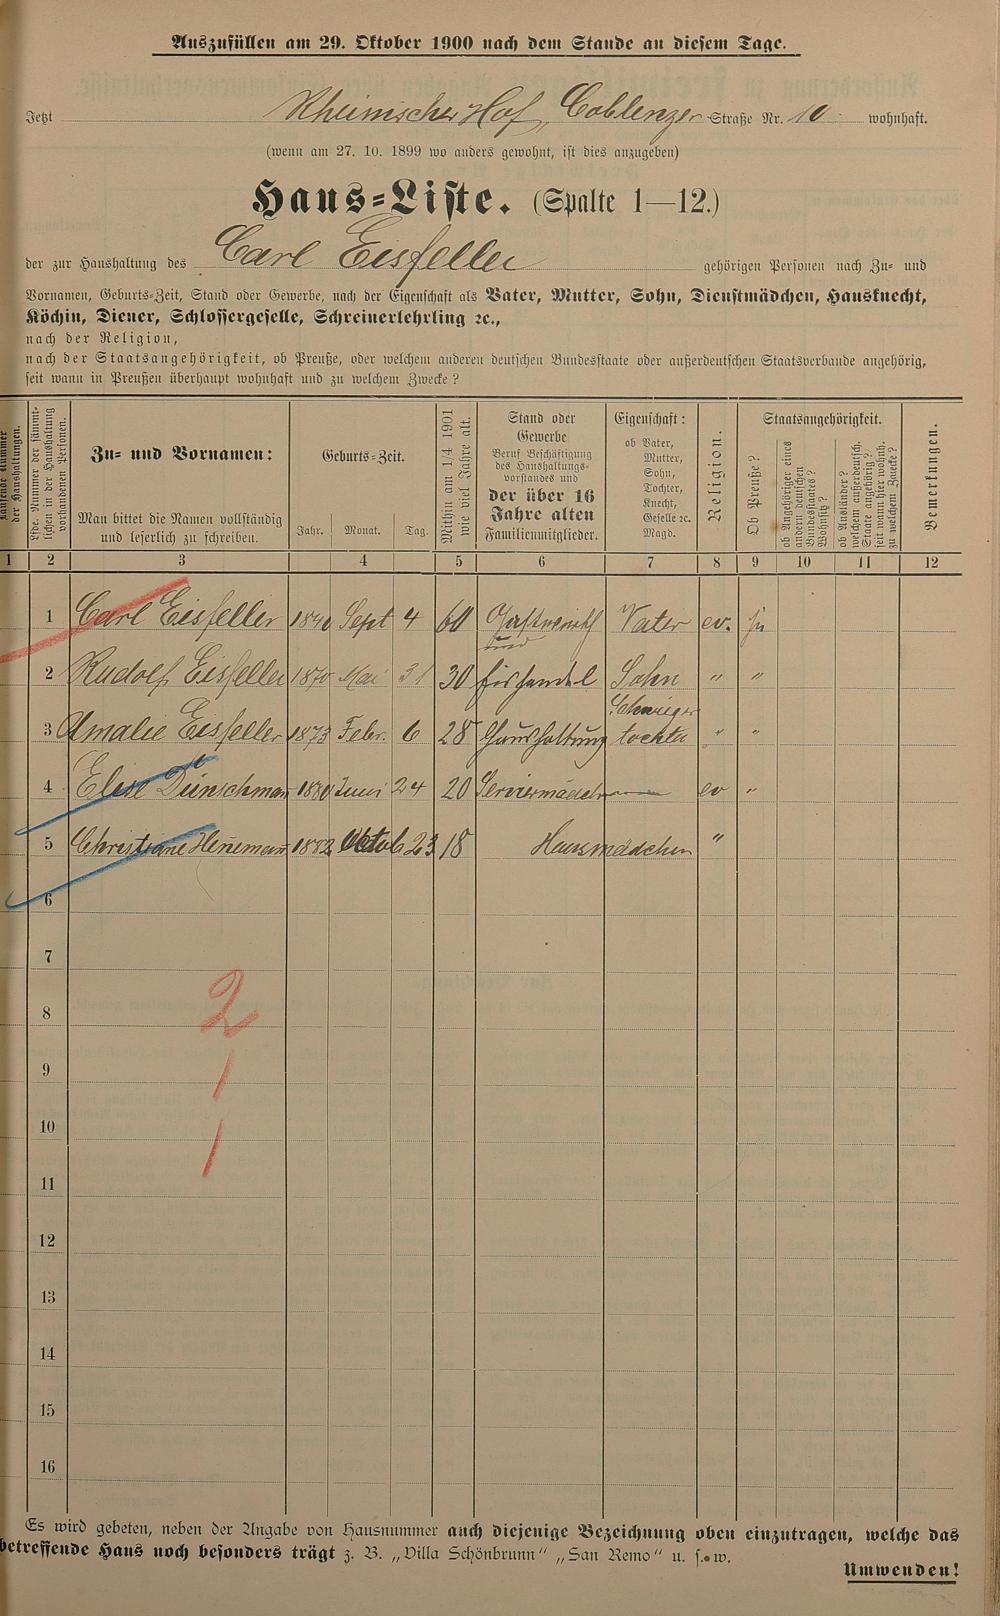 Auszufüllen am 29. Oktober 1900 nach dem Stande an diesem Tage.
Jetzt Rheinischer Hof, Coblenzer Straße Nr. 10 wohnhaft.
(wenn am 27. 10. 1899 wo anders gewohnt, ist dies anzugeben)
Haus-Liste. (Spalte 1—12.)
der zur Haushaltung des Carl Eisfeller gehörigen Personen nach Zu- und
Vornamen, Geburts-Zeit, Stand oder Gewerbe, nach der Eigenschaft als Vater, Mutter, Sohn, Dienstmädchen, Hausknecht,
Köchin, Diener, Schlossergeselle, Schreinerlehrling ꝛc.,
nach der Religion,
nach der Staatsangehörigkeit, ob Preuße, oder welchem anderen deutschen Bundesstaate oder außerdeutschen Staatsverbande angehörig,
seit wann in Preußen überhaupt wohnhaft und zu welchem Zwecke?
laufende Nummer der Haushaltungen.
Lfde. Nummer der sämmtlichen in der Haushaltung vorhandenen Personen.
Zu- und Vornamen:
Man bittet die Namen vollständig
und leserlich zu schreiben.
Geburts-Zeit.
Jahr. Monat. Tag.
Mithin am 1/4 1901
wie viel Jahre alt.
Stand oder
Gewerbe
Beruf Beschäftigung
des Haushaltungs-
vorstandes und
der über 16
Jahre alten
Familienmitglieder.
Eigenschaft:
ob Vater,
Mutter,
Sohn,
Tochter,
Knecht,
Geselle ꝛc.
Magd.
Religion.
Staatsangehörigkeit.
Ob Preuße?
ob Angehöriger eines
andern deutschen
Bundesstaates?
Wohnsitz?
ob Ausländer?
welchem außerdeutsch.
Staate angehörig?
seit wann hier wohnh.
zu welchem Zwecke?
Bemerkungen.
1 2 3 4 5 6 7 8 9 10 11 12
1 Carl Eisfeller 1840 Sept 4 60 Gastwirth Vater ev. ja
und
2 Rudolf Eisfeller 1870 Mai 31 30 Eishandel Sohn " "
Schwieger
3 Amalie Eisfeller 1873 Febr. 6 28 Haushaltung tochter " "
4 Elise Dünschmann 1880 Juni 24 20 Serviermädchen ev "
5 Christiane Heinemann 1882 Oktob 23 18 Hausmädchen "
6
7
2
8
1
9
1
10
11
12
13
14
15
16
Es wird gebeten, neben der Angabe von Hausnummer auch diejenige Bezeichnung oben einzutragen, welche das
betreffende Haus noch besonders trägt z. B. „Villa Schönbrunn“ „San Remo“ u. s. w.
Umwenden!